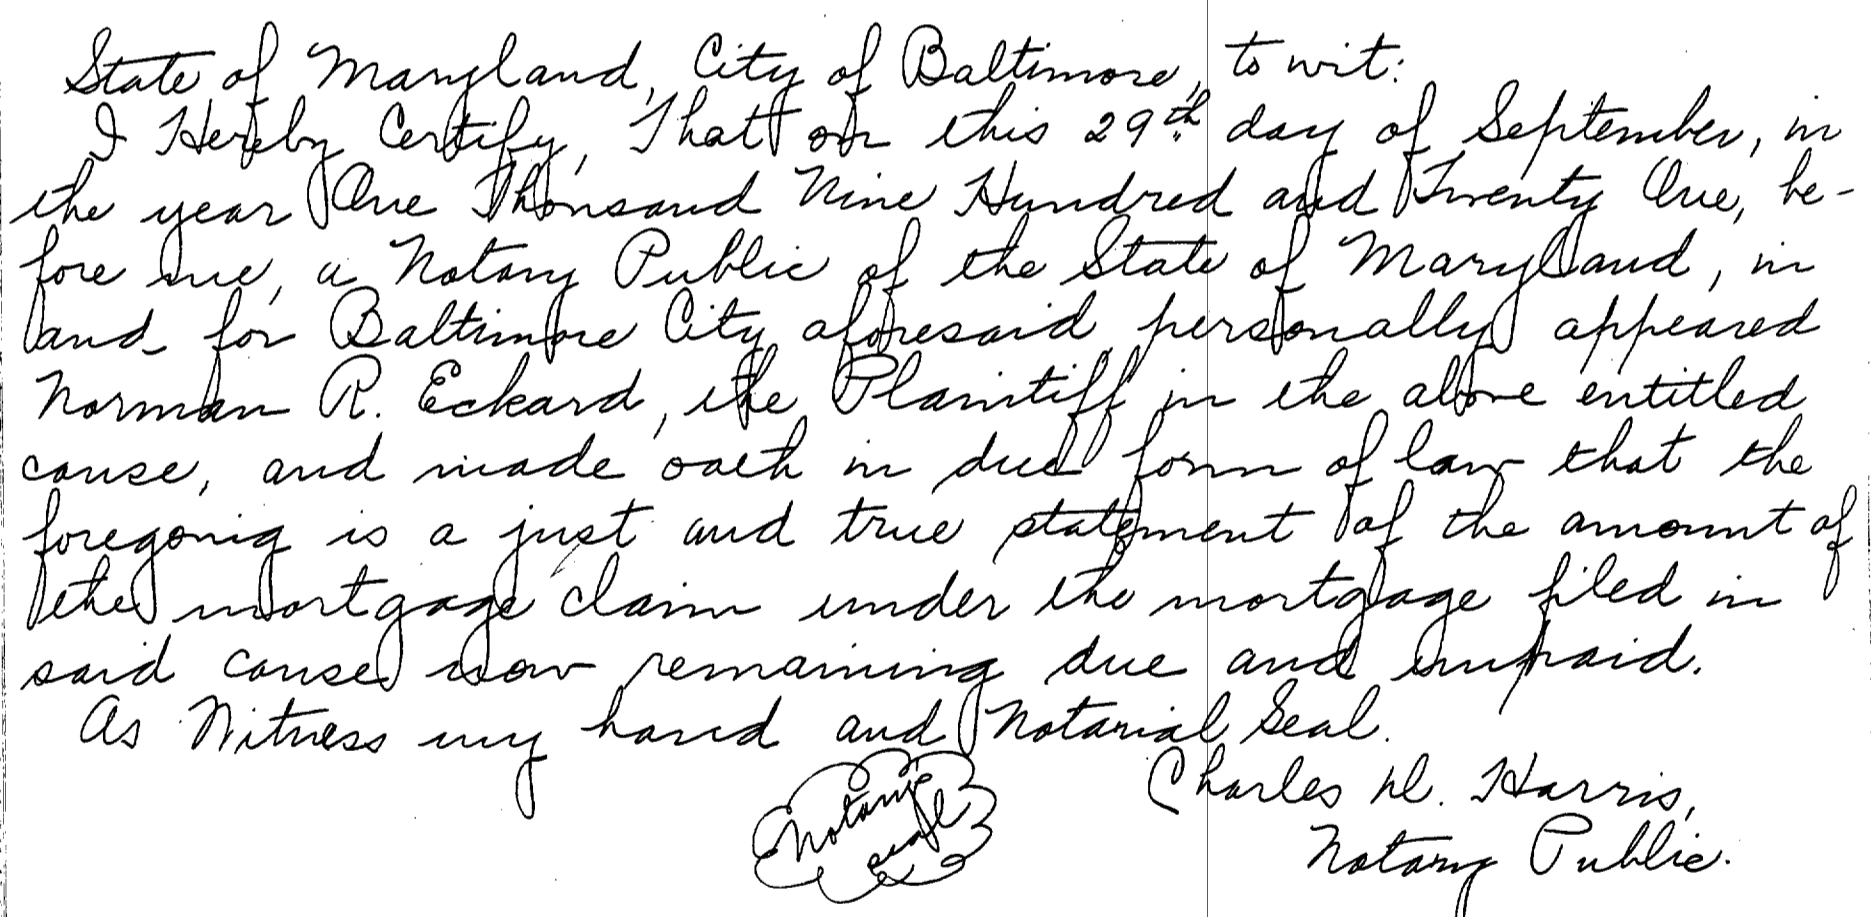 State of Maryland, City of Baltimore, to wit:
I Hereby Certify, That on this 29th day of September, in
the year One Thousand Nine Hundred and Twenty One, be-
fore me, a Notary Public of the State of Maryland, in
and for Baltimore City aforesaid personally appeared
Norman R. Eckard, the Plaintiff in the above entitled
cause, and made oath in due form of law that the
foregoing is a just and true statement of the amount of
the mortgage claim under the mortgage filed in
said cause now remaining due and unpaid.
As Witness my hand and Notarial Seal.
Charles W. Harris,
Notary
seal
Notary Public.